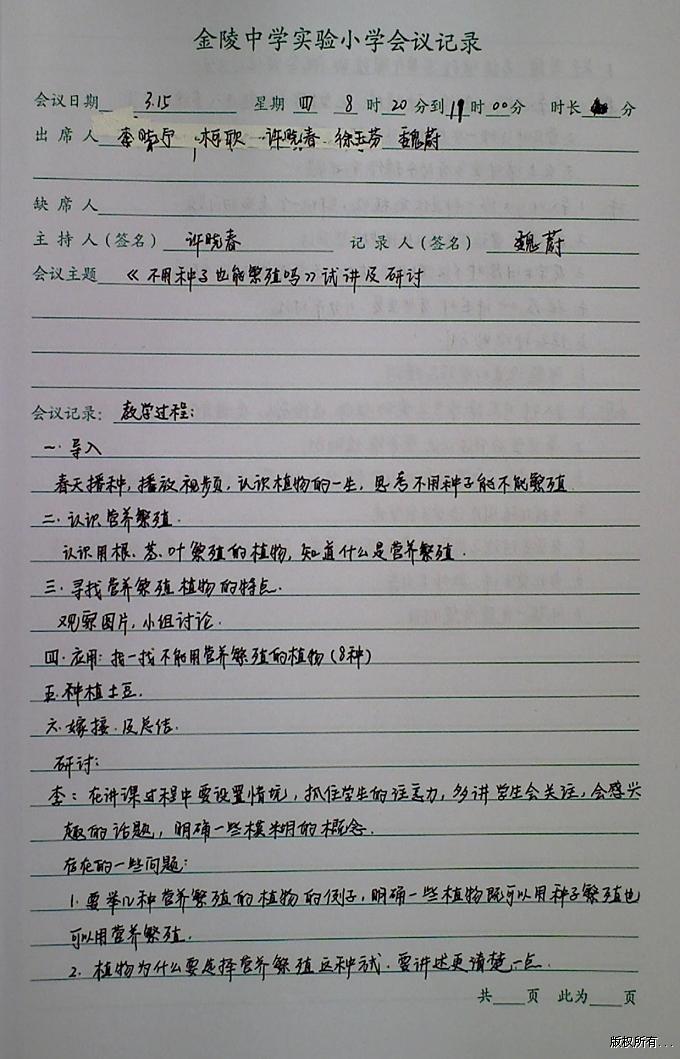 金陵中学实验小学会议记录
会议日期 3.15 星期 四 8 时 20 分到 19 时 00 分 时长 分
出席人 李晓宁 柯耿 许晓春 徐玉芬 魏蔚
缺席人
主持人(签名) 许晓春 记录人(签名) 魏蔚
会议主题 《不用种子也能繁殖吗》试讲及研讨
会议记录: 教学过程:
一.导入
春天播种,播放视频,认识植物的一生,思考不用种子能不能繁殖
二.认识营养繁殖.
认识用根、茎、叶繁殖的植物,知道什么是营养繁殖.
三.寻找营养繁殖植物的特点.
观察图片,小组讨论.
四.应用:找一找不能用营养繁殖的植物(8种)
五.种植土豆.
六.嫁接及总结.
研讨:
李:在讲课过程中要设置情境,抓住学生的注意力,多讲学生会关注,会感兴
趣的话题,明确一些模糊的概念.
存在的一些问题:
1.要举几种营养繁殖的植物的例子,明确一些植物既可以用种子繁殖也
可以用营养繁殖.
2.植物为什么要选择营养繁殖这种方式.要讲述更清楚一点.
共 页 此为 页
版权所有...